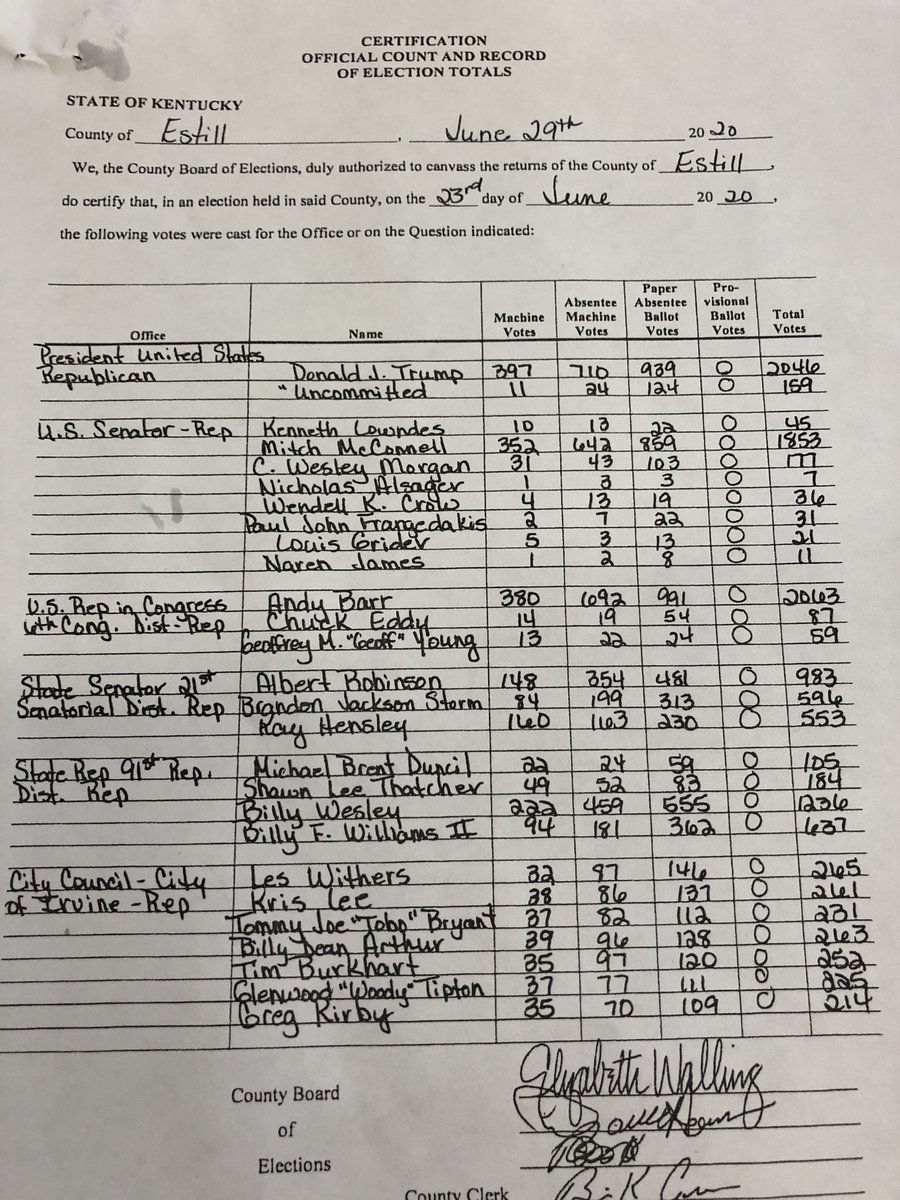 CERTIFICATION
OFFICIAL COUNT AND RECORD
OF ELECTION TOTALS
STATE OF KENTUCKY
County of Estill, June 29th 20 20
We, the County Board of Elections, duly authorized to canvass the returns of the County of Estill,
do certify that, in an election held in said County, on the 23rd day of June 20 20,
the following votes were cast for the Office or on the Question indicated:
Office Name Machine Votes Absentee Machine Votes Paper Absentee Ballot Votes Pro-visional Ballot Votes Total Votes
President United States
Republican Donald J. Trump 397 710 939 0 2046
"Uncommitted 11 24 124 0 159
U.S. Senator - Rep Kenneth Lowndes 10 13 22 0 45
Mitch McConnell 352 642 859 0 1853
C. Wesley Morgan 31 43 103 0 177
Nicholas Alsager 1 3 3 0 7
Wendell K. Crow 4 13 19 0 36
Paul John Frangedakis 2 7 22 0 31
Louis Grider 5 3 13 0 21
Naren James 1 2 8 0 11
U.S. Rep in Congress Andy Barr 380 692 991 0 2063
6th Cong. Dist-Rep Chuck Eddy 14 19 54 0 87
Geoffrey M. "Geoff" Young 13 22 24 0 59
State Senator 21st Albert Robinson 148 354 481 0 983
Senatorial Dist. Rep Brandon Jackson Storm 84 199 313 0 596
Kay Hensley 160 163 230 0 553
State Rep 91st Rep. Michael Brent Duncil 22 24 59 0 105
Dist. Rep Shawn Lee Thatcher 49 52 83 0 184
Billy Wesley 222 459 555 0 1236
Billy F. Williams II 94 181 362 0 637
City Council - City Les Withers 32 87 146 0 265
of Irvine - Rep Kris Lee 38 86 137 0 261
Tommy Joe "Tobo" Bryant 37 82 112 0 231
Billy Dean Arthur 39 96 128 0 263
Tim Burkhart 35 97 120 0 252
Glenwood "Woody" Tipton 37 77 111 0 225
Greg Kirby 35 70 109 0 214
County Board
of
Elections
County Clerk